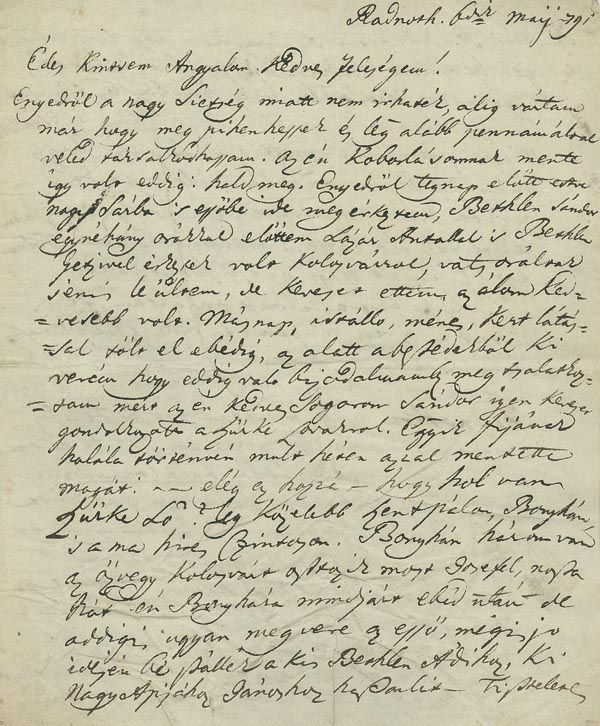 Radnoth. 6dik Maij 791
Édes Kintsem Angyalom. Kedves Feleségem!
Enyedről a nagy Sietség miatt nem irhaték, alig vártam
már hogy meg pihenhessek és leg alább pennámal
veled társalkodhassam. Az én Koborlásomnak mente
igy volt eddig: hald meg. Enyedről tegnap előtt estve
nagy Sárba 's essőbe ide meg érkeztem, Bethlen Sándor
egynéhány orákkal előttem Lázár Antallal is Bethlen
érkezek volt Kolosvárrol, vatsorálták
sem is le ültem, de keveset ettem, az álom Ked-
=vesebb volt. Másnap, istálló, ménes, Kert látás-
=sal tölt el ebédig, az alatt a beszédekből ki
vevém hogy eddig való bizodalmamb meg tsalatkoz-
=tam mert az én Kedves Sogorom Sándor igen keveset
gondolkozott a Szürke Egyik fijának
halála történvén mult héten azzal mentette
magát. — elég az hozzá — hogy hol van
Szürke Ló? leg közelebb Szent pálon, Bonyhán,
is a ma hires Czintoson. Bonyhán három van
az özvegy Kolosvárt most Josefel,
hát én Bonyhára mindjárt ebéd után de
addig ugyan meg vere az essö, mégis jo
idején bé a kis Bethlen Ádihoz, Ki
Nagy Apjához Jánoshoz hasonlit — Tiszteletes